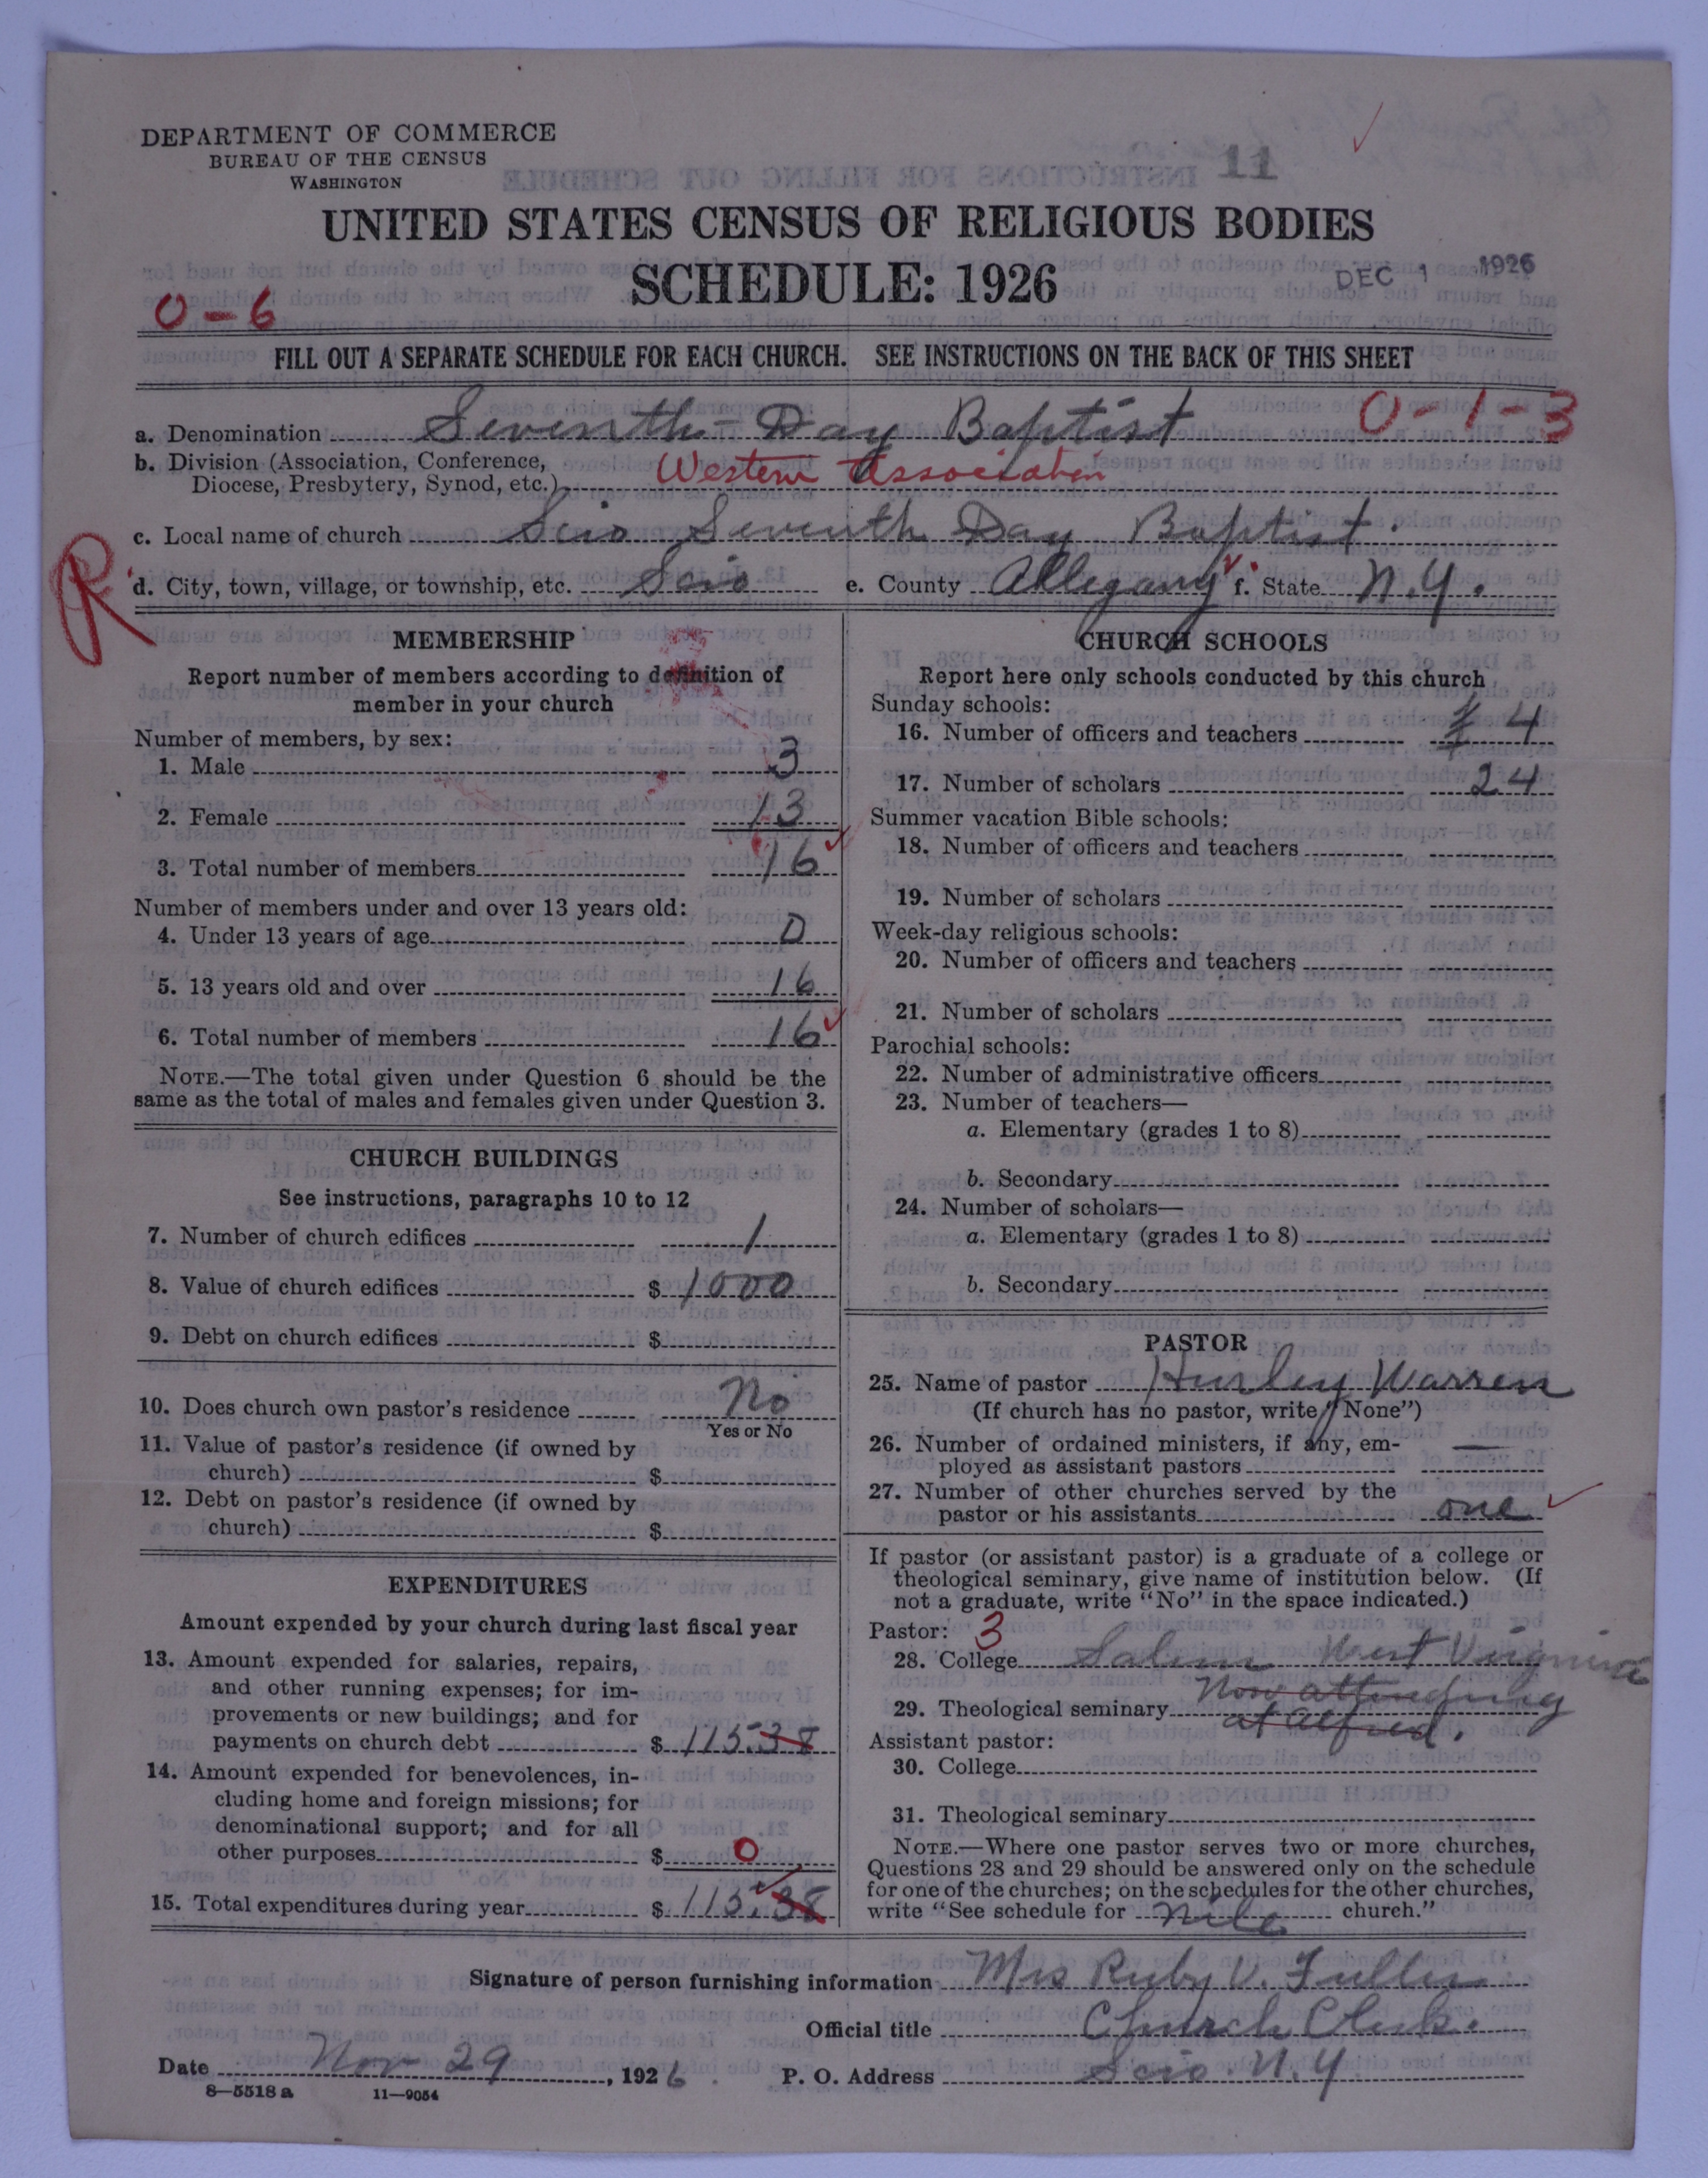 DEPARTMENT OF COMMERCE
BUREAU OF THE CENSUS
WASHINGTON
11
UNITED STATES CENSUS OF RELIGIOUS BODIES
SCHEDULE: 1926
DEC 1 1926
0-6
FILL OUT A SEPARATE SCHEDULE FOR EACH CHURCH. SEE INSTRUCTIONS ON THE BACK OF THIS SHEET
a. Denomination Seventh-Day Baptist 0-1-3
b. Division (Association, Conference,
Diocese, Presbytery, Synod, etc.) Western Association
c. Local name of church Scio Seventh Day Baptist.
R
d. City, town, village, or township, etc. Scio e. County Allegany f. State N.Y.
MEMBERSHIP
Report number of members according to definition of
member in your church
Number of members, by sex:
1. Male 3
2. Female 13
3. Total number of members 16
Number of members under and over 13 years old:
4. Under 13 years of age 0
5. 13 years old and over 16
6. Total number of members 16
NOTE.—The total given under Question 6 should be the
same as the total of males and females given under Question 3.
CHURCH BUILDINGS
See instructions, paragraphs 10 to 12
7. Number of church edifices 1
8. Value of church edifices $ 1000
9. Debt on church edifices $
10. Does church own pastor's residence No
Yes or No
11. Value of pastor's residence (if owned by
church) $
12. Debt on pastor's residence (if owned by
church) $
EXPENDITURES
Amount expended by your church during last fiscal year
13. Amount expended for salaries, repairs,
and other running expenses; for im-
provements or new buildings; and for
payments on church debt $ 115.38
14. Amount expended for benevolences, in-
cluding home and foreign missions; for
denominational support; and for all
other purposes $ 0
15. Total expenditures during year $ 115.38
CHURCH SCHOOLS
Report here only schools conducted by this church
Sunday schools:
16. Number of officers and teachers 4
17. Number of scholars 24
Summer vacation Bible schools:
18. Number of officers and teachers
19. Number of scholars
Week-day religious schools:
20. Number of officers and teachers
21. Number of scholars
Parochial schools:
22. Number of administrative officers
23. Number of teachers—
a. Elementary (grades 1 to 8)
b. Secondary
24. Number of scholars—
a. Elementary (grades 1 to 8)
b. Secondary
PASTOR
25. Name of pastor Hurley Warren
(If church has no pastor, write "None")
26. Number of ordained ministers, if any, em-
ployed as assistant pastors —
27. Number of other churches served by the
pastor or his assistants one
If pastor (or assistant pastor) is a graduate of a college or
theological seminary, give name of institution below. (If
not a graduate, write "No" in the space indicated.)
Pastor: 3
28. College Salem West Virginia
29. Theological seminary Now attending
at Alfred.
Assistant pastor:
30. College
31. Theological seminary
NOTE.—Where one pastor serves two or more churches,
Questions 28 and 29 should be answered only on the schedule
for one of the churches; on the schedules for the other churches,
write "See schedule for Nile church."
Signature of person furnishing information Mrs Ruby V. Fuller
Official title Church Clerk.
Date Nov 29, 1926. P. O. Address Scio N.Y.
8—5518 a 11—9054